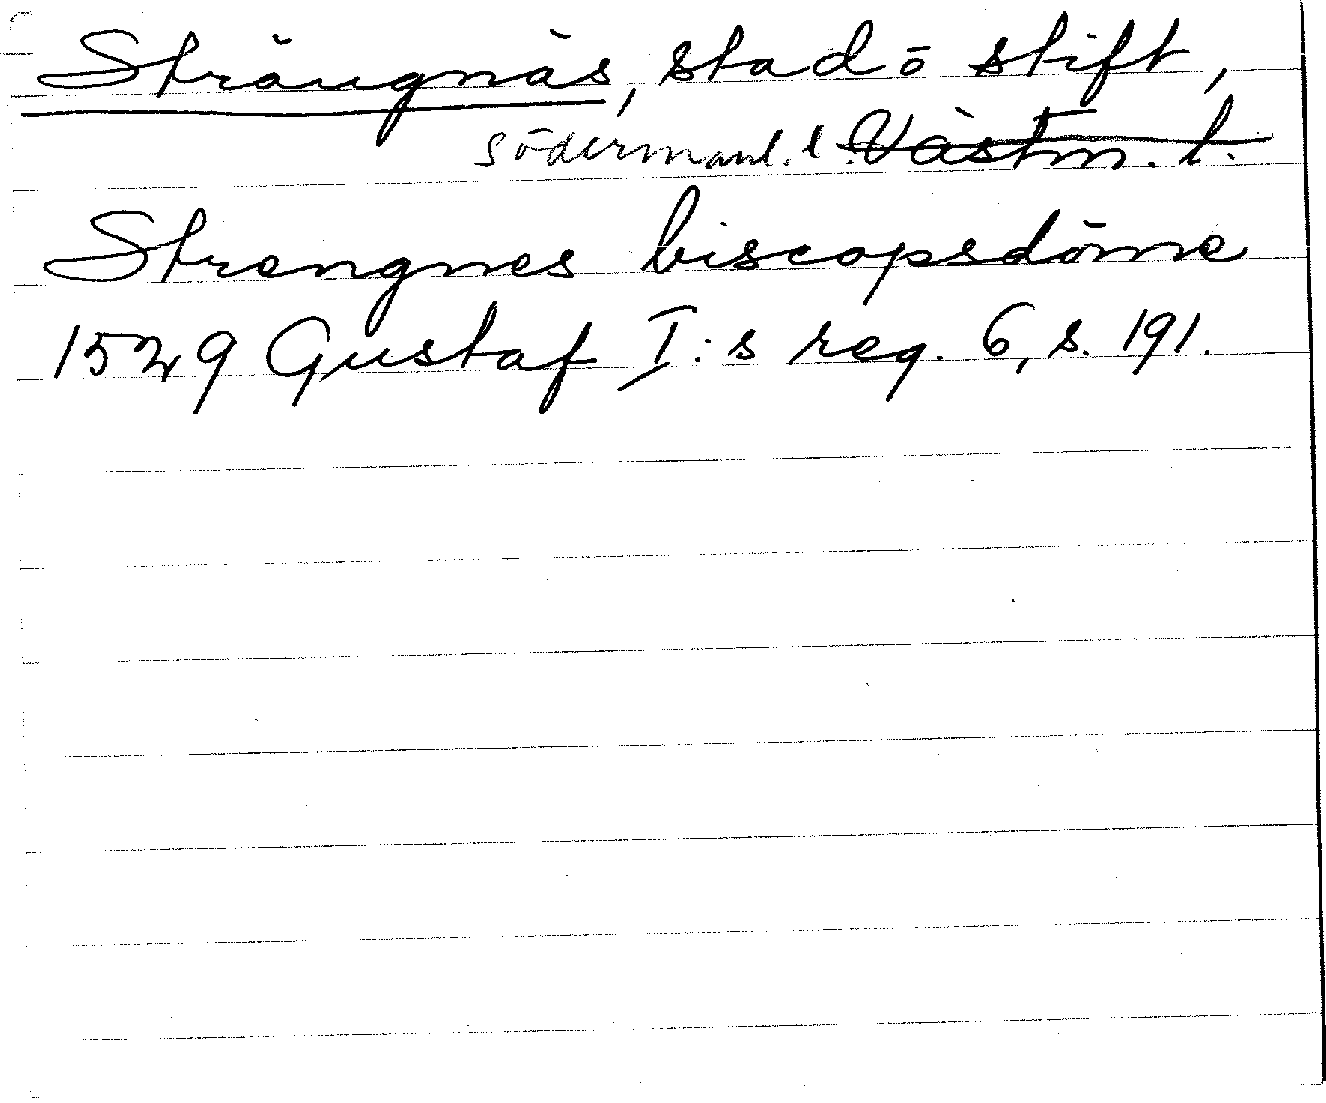 Strängnäs, stad ö stift,
Södermanl. l. Västm. l.
Strengnes biscopsdöme
1529 Gustaf I:s reg. 6, s. 191.